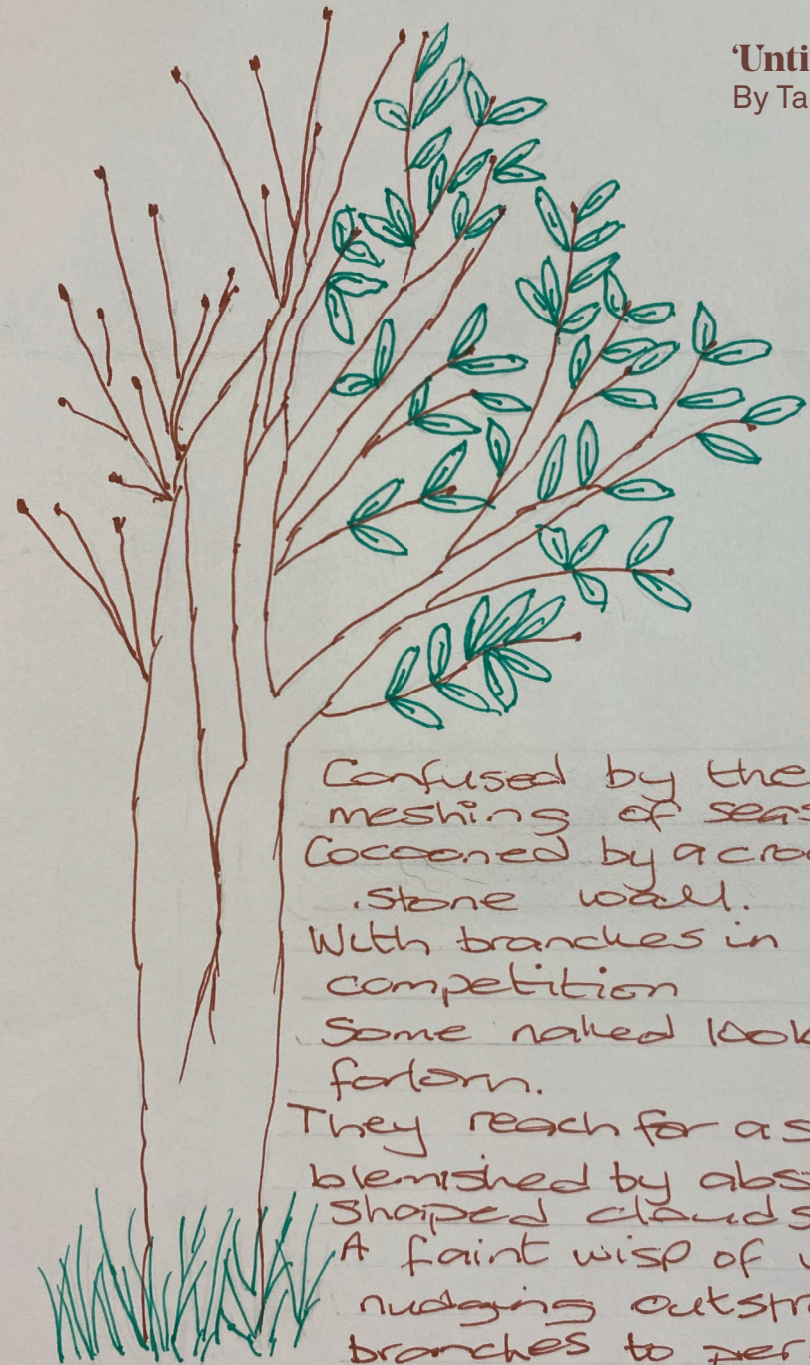 ‘Unti
By Ta
Confused by the
meshing of seas
Cocooned by a croo
stone wall.
With branches in
competition
Some naked look
forlorn.
They reach for a s
blemished by abs
shaped clouds
A faint wisp of w
nudging outstr
branches to per